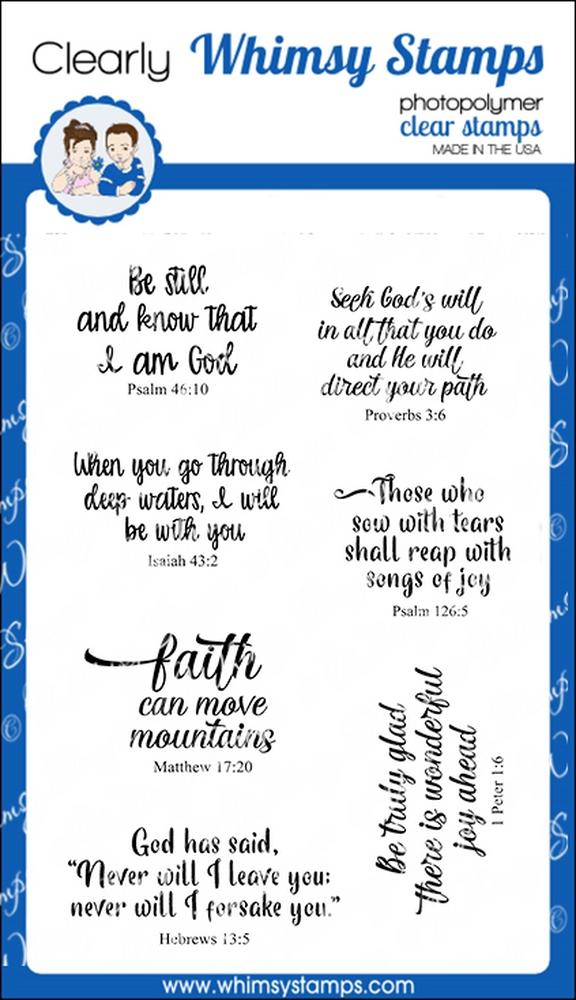 Clearly Whimsy Stamps
photopolymer
clear stamps
MADE IN THE USA
Be still
and know that
I am God
Psalm 46:10
Seek God's will
in all that you do
and He will
direct your path
Proverbs 3:6
When you go through
deep waters, I will
be with you
Isaiah 43:2
Those who
sow with tears
shall reap with
songs of joy
Psalm 126:5
faith
can move
mountains
Matthew 17:20
Be truly glad
there is wonderful
joy ahead
1 Peter 1:6
God has said,
"Never will I leave you:
never will I forsake you."
Hebrews 13:5
www.whimsystamps.com